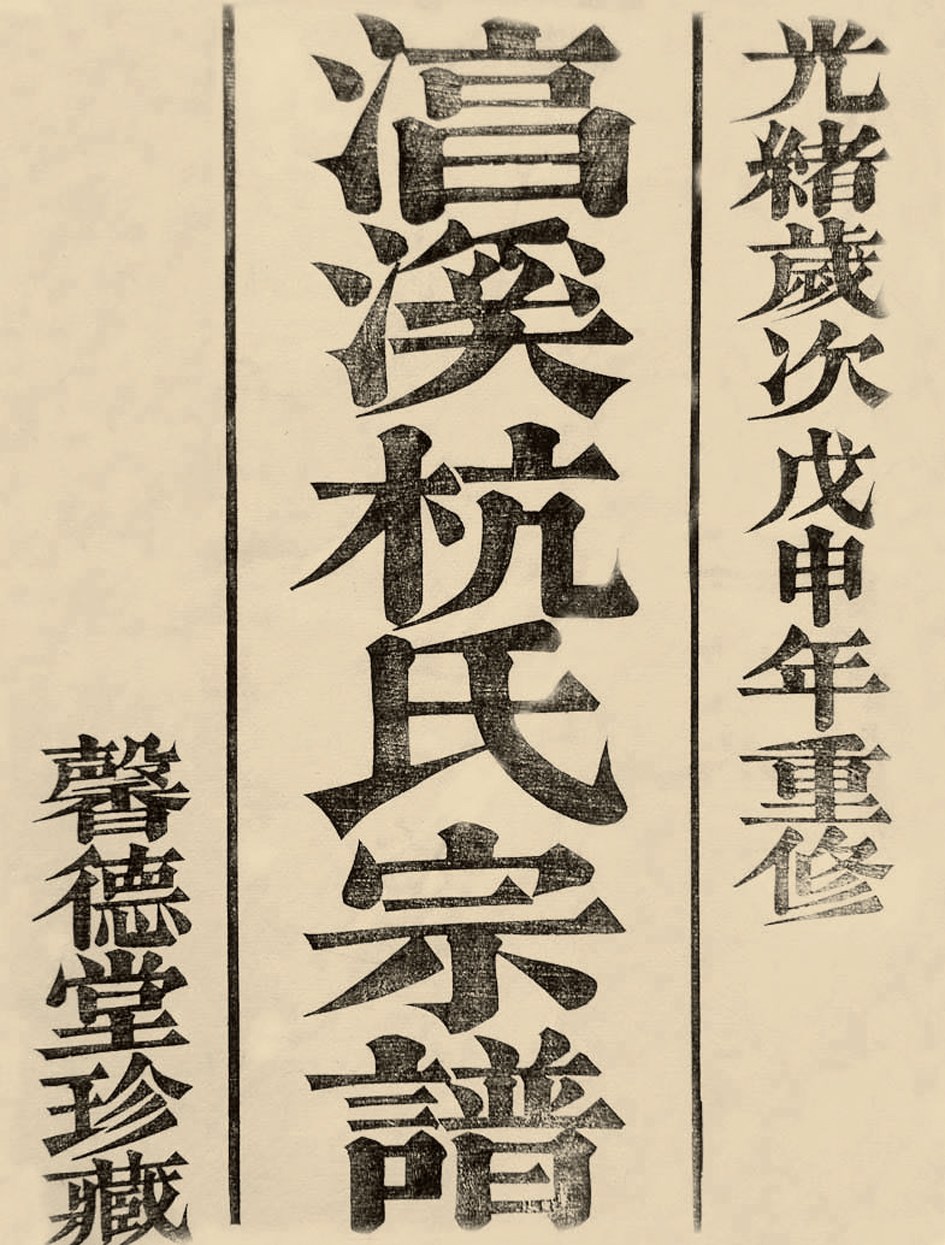 光緒歲次戊申年重修
湻溪杭氏宗譜
馨德堂珍藏